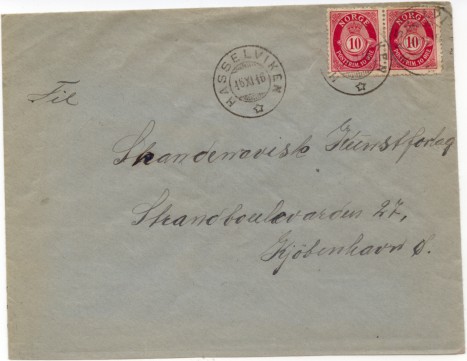 NORGE NORGE
10 10
POSTFRIM. 10 ØRE POSTFRIM. 10 ØRE
HASSELVIKEN
15 XI 16
Til
Skandenavisk Kunstforlag
Strandboulevarden 27,
Kjöbenhavn Ø.